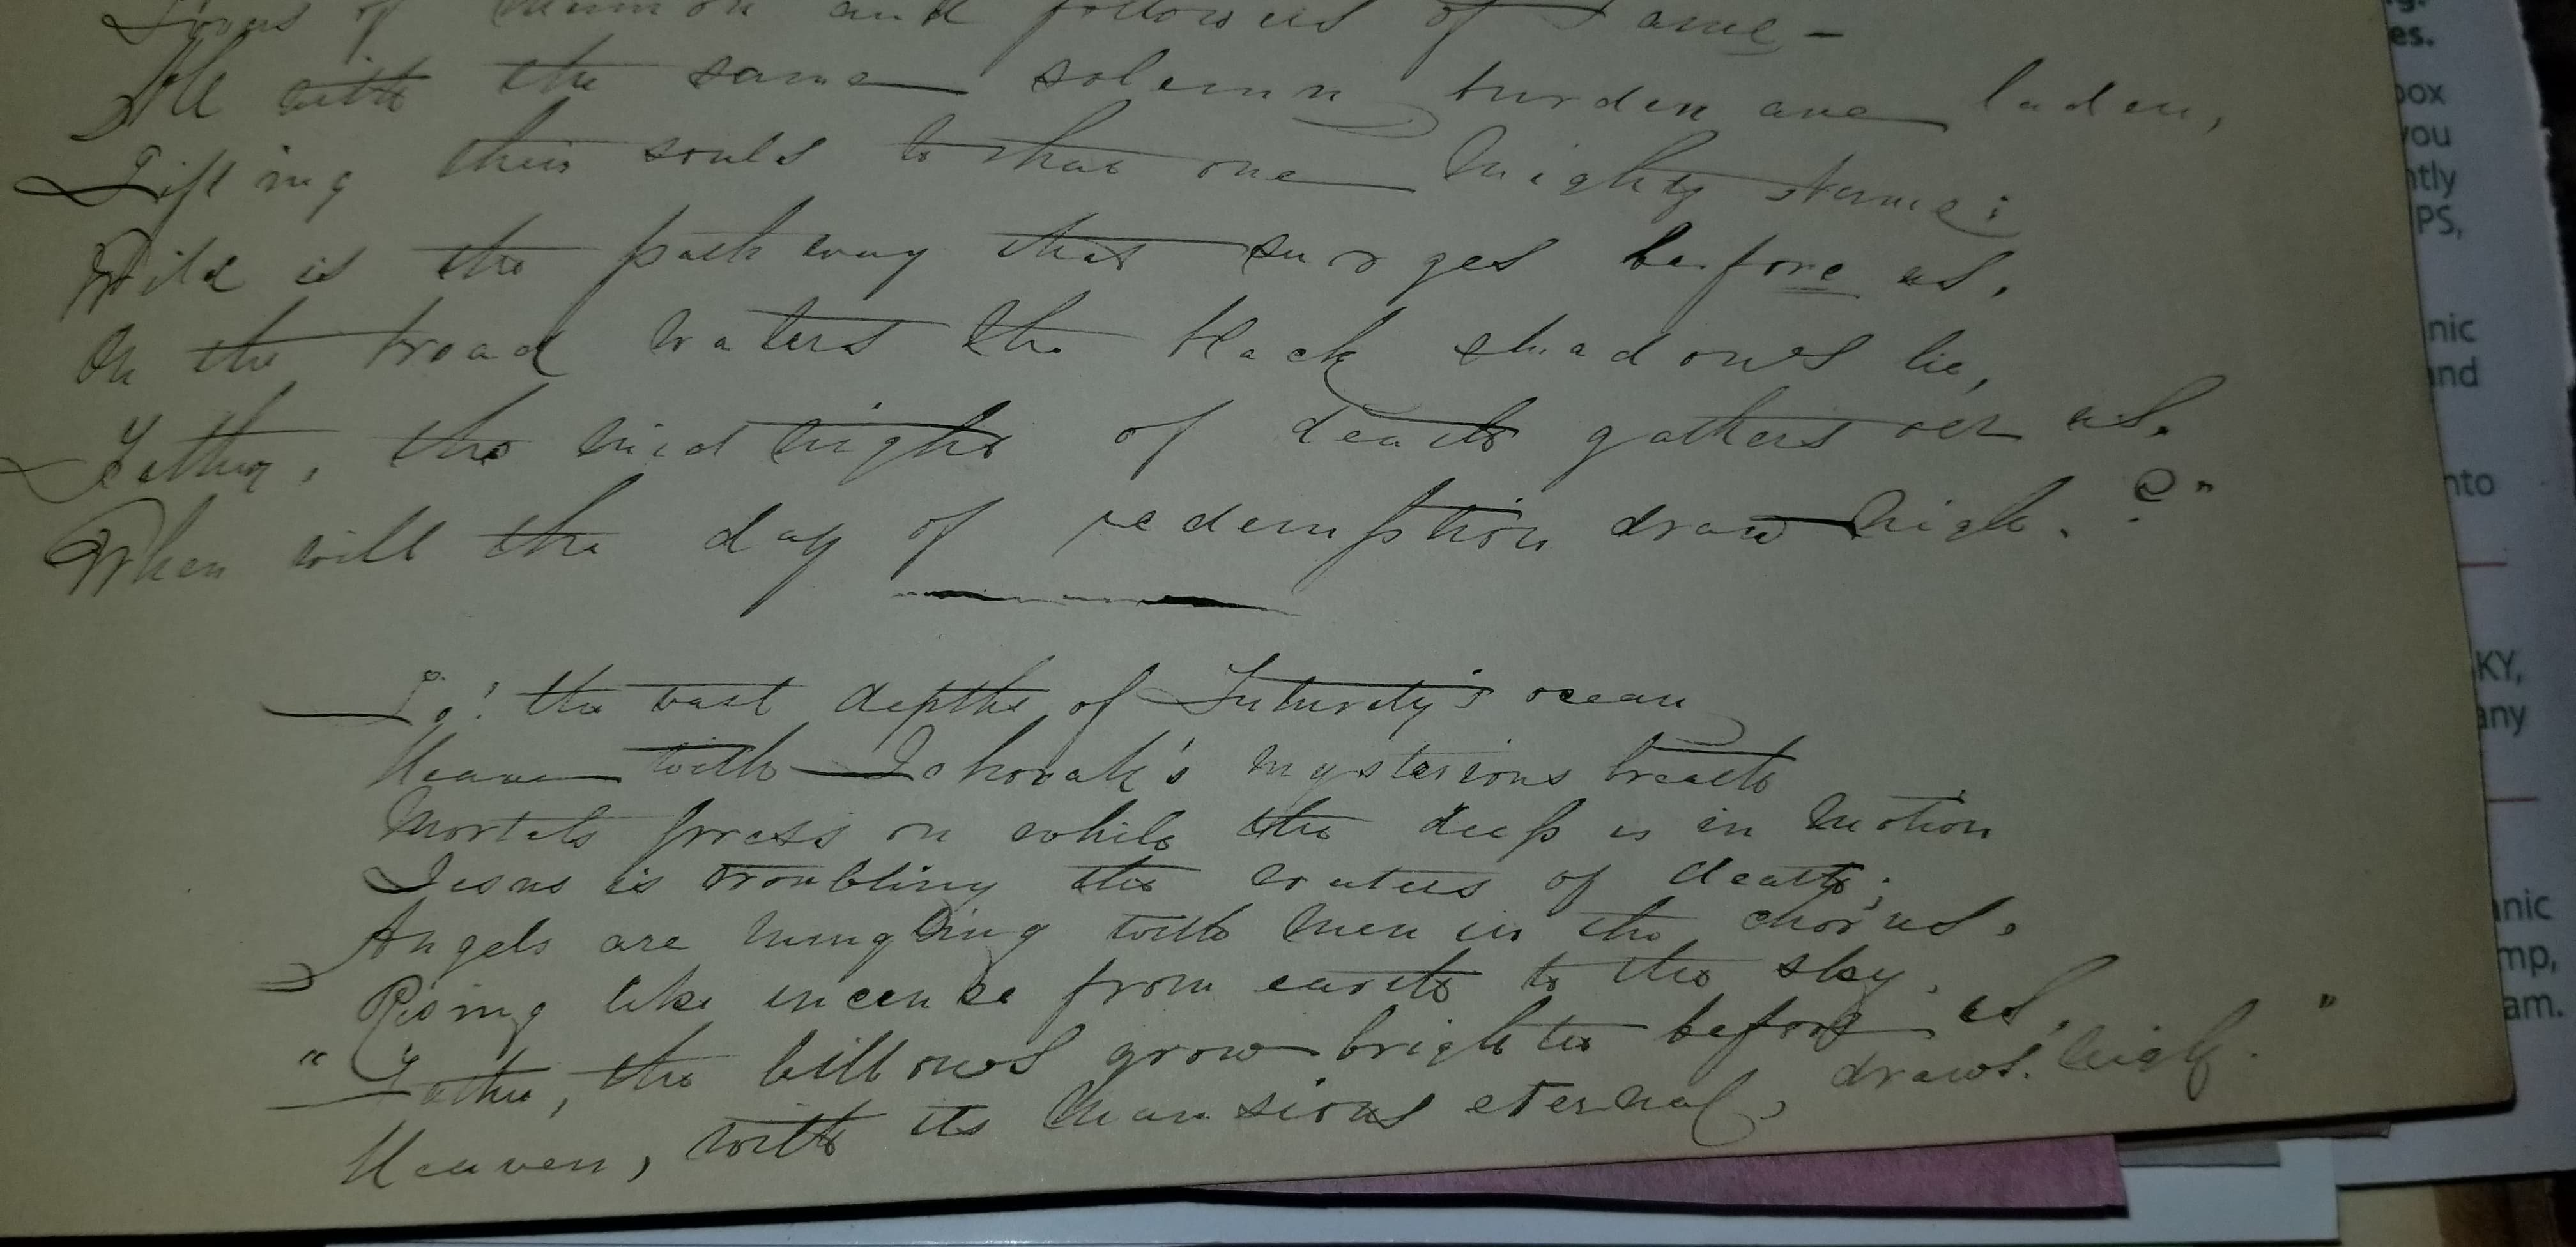 Lovers of Mammon and followers of Fame –
All with the same solemn burden are laden,
Lifting their souls to that one mighty name:
Wild is the pathway that surges before us,
On the broad waters the black shadows lie,
Father, the midnight of death gathers oer us.
When will the day of redemption draw nigh. ?"
Lo! the vast depths of Futurity's ocean
Heave with Jehovah's mysterious breath
Mortals press on while the deep is in motion
Jesus is troubling the waters of death;
Angels are mingling with men in the chorus.
Rising like incense from earth to the sky.
"Father, the billows grow brighter before us,
Heaven, with its mansions eternal, draws nigh."
es.
box
you
ntly
PS,
nic
and
nto
KY,
any
anic
mp,
am.